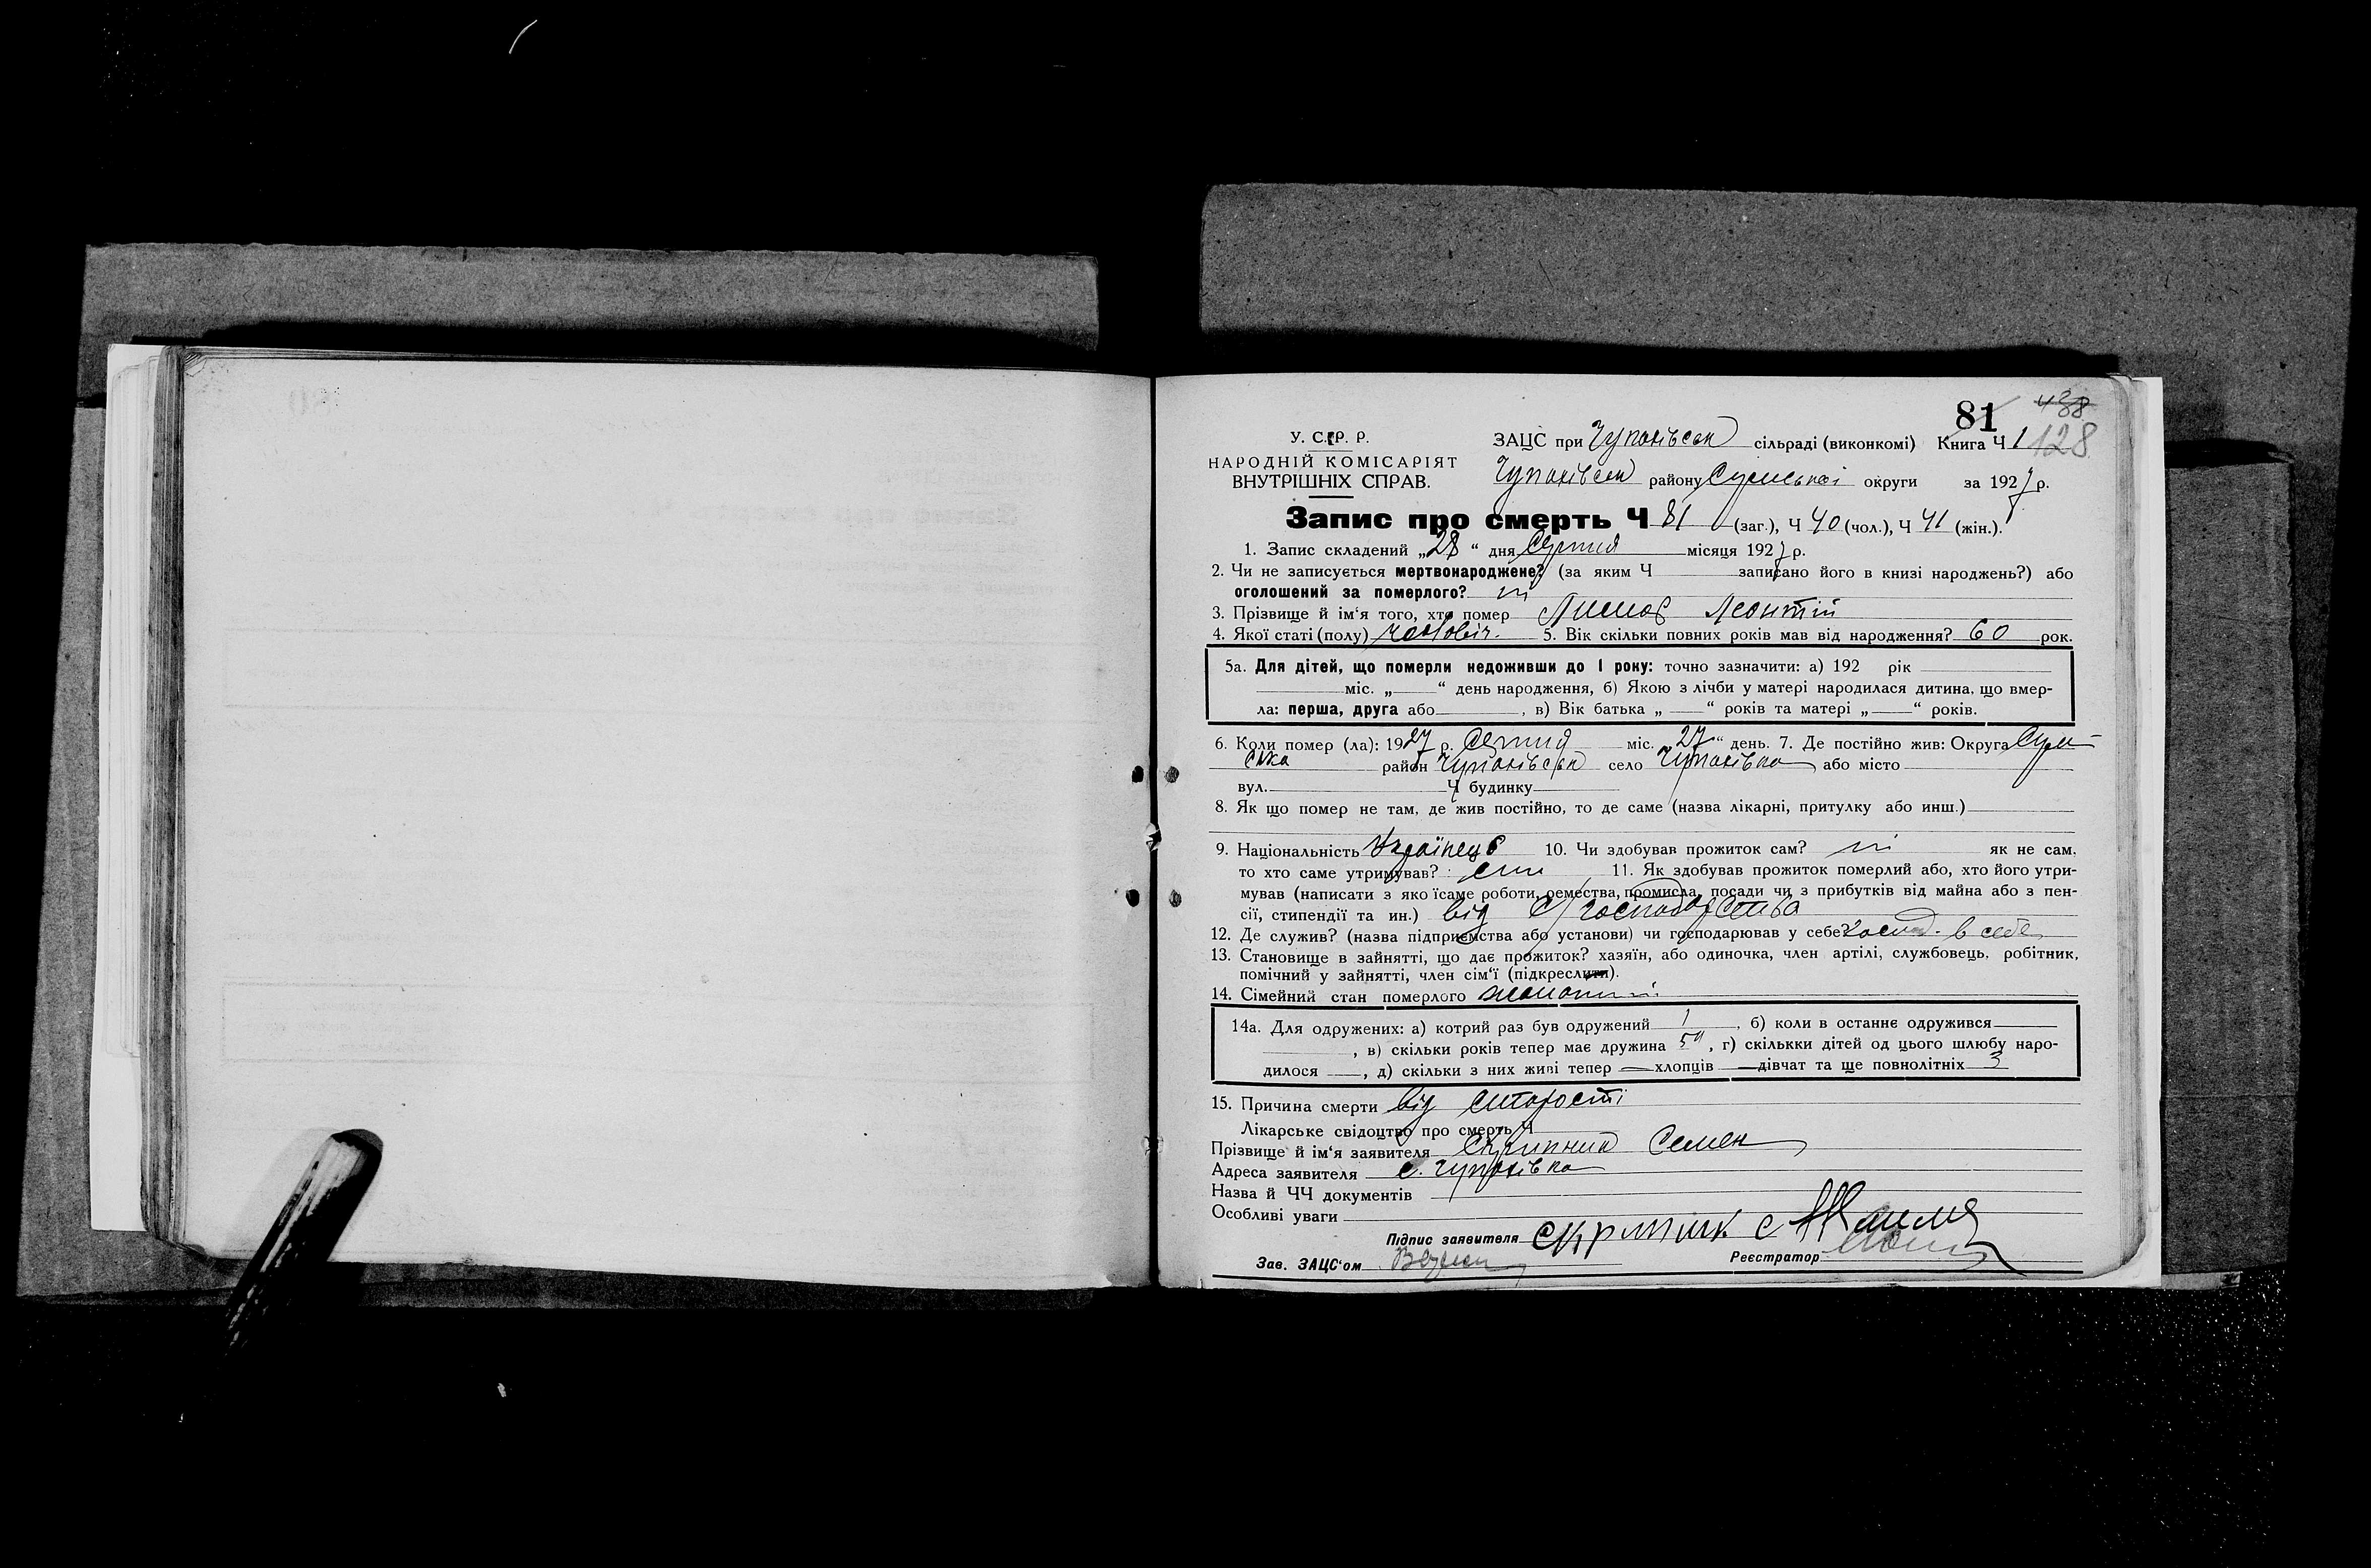 81 438
У. С. Р. Р. ЗАЦС при Чупахівськ сільраді (виконкомі) Книга Ч 1 128
НАРОДНІЙ КОМІСАРІЯТ
ВНУТРІШНІХ СПРАВ. Чупахівськ району Сумської округи за 1927 р.
Запис про смерть Ч 81 (заг.), Ч 40 (чол.), Ч 41 (жін.).
1. Запис складений „28“ дня Серпня місяця 1927 р.
2. Чи не записується мертвонароджене? (за яким Ч записано його в книзі народжень?) або
оголошений за померлого? ні
3. Прізвище й ім‘я того, хто помер Леонтій
4. Якої статі (полу) чоловіч. 5. Вік скільки повних років мав від народження? 60 рок.
5а. Для дітей, що померли недоживши до 1 року: точно зазначити: а) 192 рік
міс. „ “ день народження, б) Якою з лічби у матері народилася дитина, що вмер-
ла: перша, друга або , в) Вік батька „ “ років та матері „ “ років.
6. Коли помер (ла): 1927 р. Серпня міс. „27“ день. 7. Де постійно жив: Округа Сум-
ська район Чупахівськ село Чупахівка або місто
вул. Ч будинку
8. Як що помер не там, де жив постійно, то де саме (назва лікарні, притулку або инш.)
9. Національність Українець 10. Чи здобував прожиток сам? ні як не сам,
то хто саме утримував? син 11. Як здобував прожиток померлий або, хто його утри-
мував (написати з яко їсаме роботи, ремества, промисла, посади чи з прибутків від майна або з пен-
сії, стипендії та ин.) від с/господарства
12. Де служив? (назва підприємства або установи) чи господарював у себе? Господ. в себе
13. Становище в зайнятті, що дає прожиток? хазяїн, або одиночка, член артілі, службовець, робітник,
помічний у зайнятті, член сім‘ї (підкреслити).
14. Сімейний стан померлого жонатий
14а. Для одружених: а) котрий раз був одружений 1 , б) коли в останнє одружився
, в) скільки років тепер має дружина , г) скількки дітей од цього шлюбу наро-
дилося , д) скільки з них живі тепер хлопців дівчат та ще повнолітніх 3
15. Причина смерти від старості
Лікарське свідоцтво про смерть Ч
Прізвище й ім‘я заявителя Скрипник Семен
Адреса заявителя с. Чупахівка
Назва й ЧЧ документів
Особливі уваги
Підпис заявителя Скрипник с
Зав. ЗАЦС‘ом Реєстратор